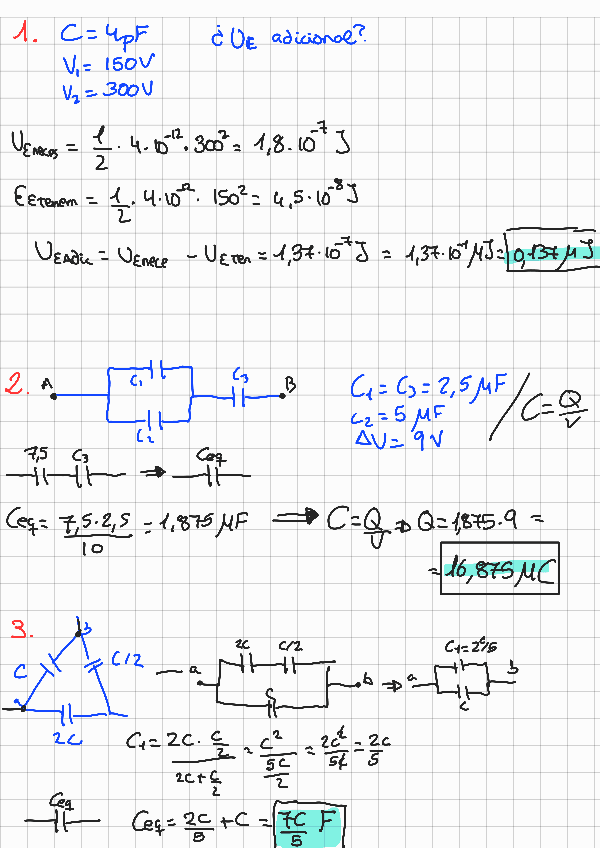 1. C = 4pF ¿UE adicional?
V₁ = 150V
V₂ = 300V
UEneces = 1/2 · 4·10⁻¹² · 300² = 1,8·10⁻⁷ J
EEtenem = 1/2 · 4·10⁻¹² · 150² = 4,5·10⁻⁸ J
UEAdic = UEnece - UEten = 1,37·10⁻⁷ J = 1,37·10⁻¹ μJ = 0,137 μJ
2. A C₁ C₂ C₃ B C₁ = C₃ = 2,5 μF / C = Q/V
C₂ = 5 μF
ΔV = 9V
7,5 C₃ ⇒ Ceq
Ceq = 7,5·2,5/10 = 1,875 μF ⇒ C = Q/V ⇒ Q = 1,875·9 =
= 16,875 μC
3. b
C C/2 a 2C C/2 C b ⇒ a C₁=2C/5 C b
2C
C₁ = 2C · C/2 / 2C + C/2 = C² / 5C/2 = 2C²/5C = 2C/5
Ceq Ceq = 2C/5 + C = 7C/5 F